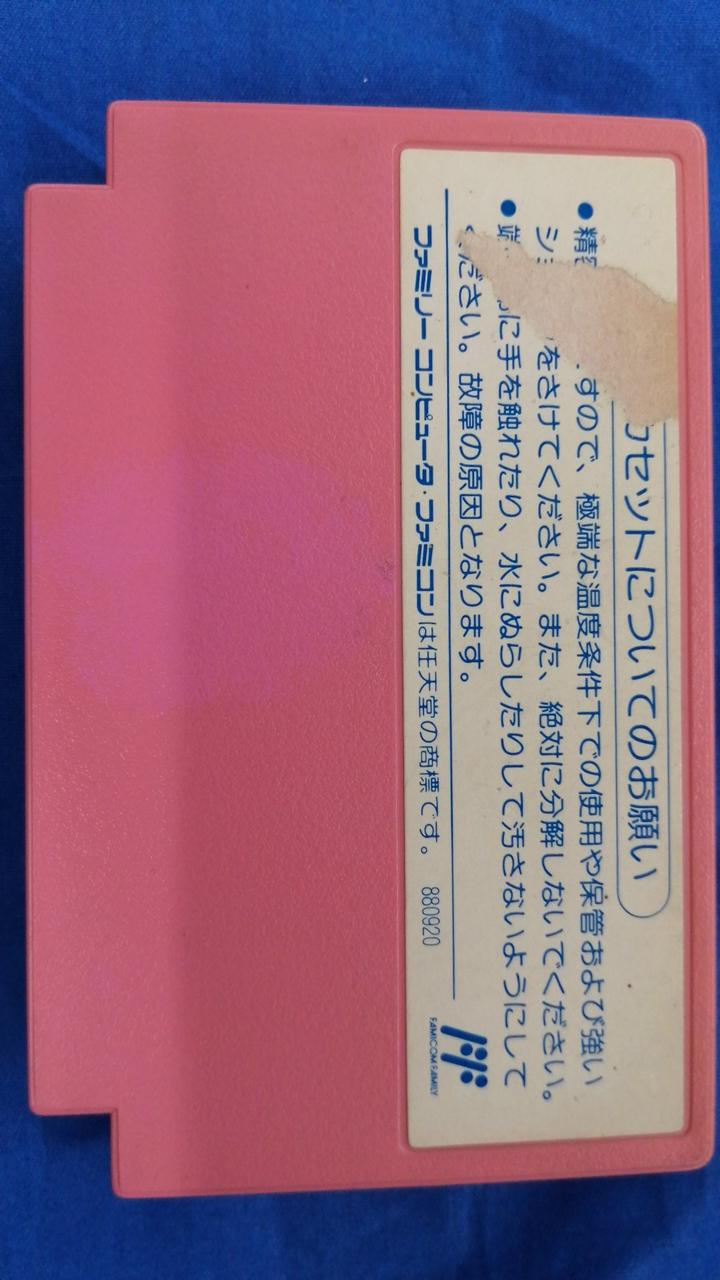 カセットについてのお願い
●精密 すので、極端な温度条件下での使用や保管および強い
ショ をさけてください。また、絶対に分解しないでください。
●端 に手を触れたり、水にぬらしたりして汚さないようにして
ください。故障の原因となります。
ファミリー コンピュータ・ファミコンは任天堂の商標です。 880920
FAMICOM FAMILY